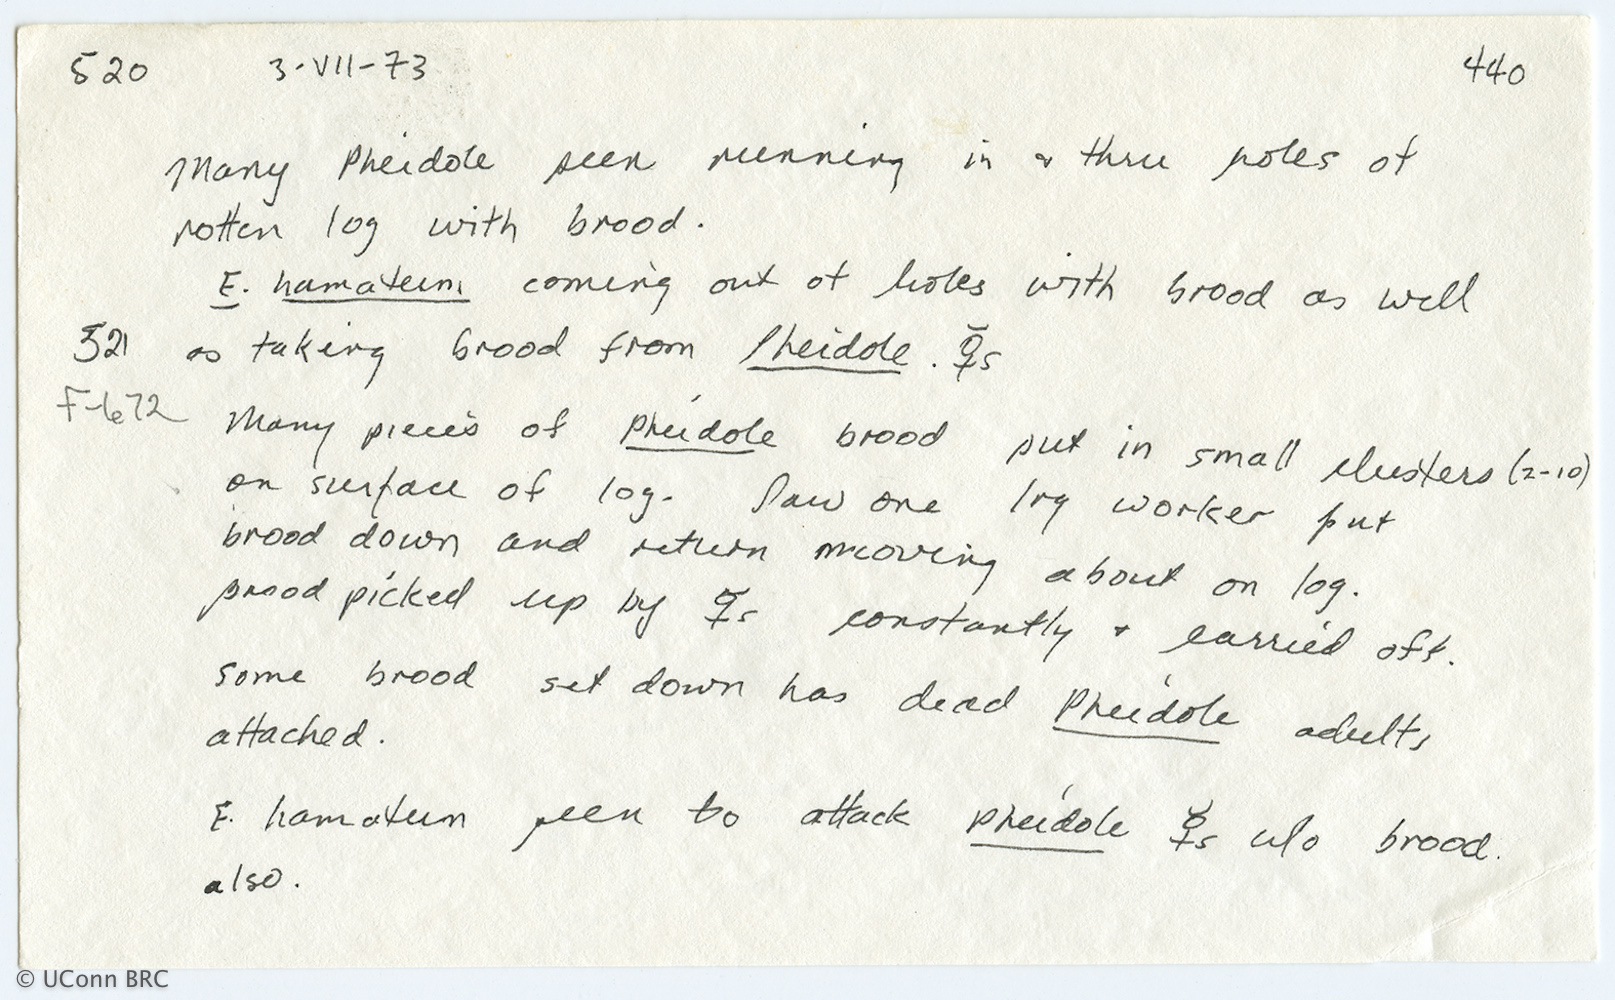 520 3-VII-73 440
Many Pheidole seen running in & thru holes of
rotten log with brood.
E. hamatum coming out of holes with brood as well
521 as taking brood from Pheidole. ☿s
F-672 Many pieces of Pheidole brood put in small clusters (2-10)
on surface of log. Saw one lrg worker put
brood down and return moving about on log.
brood picked up by ☿s constantly & carried off.
some brood set down has dead Pheidole adults
attached.
E. hamatum seen to attack Pheidole ☿s w/o brood.
also.
© UConn BRC